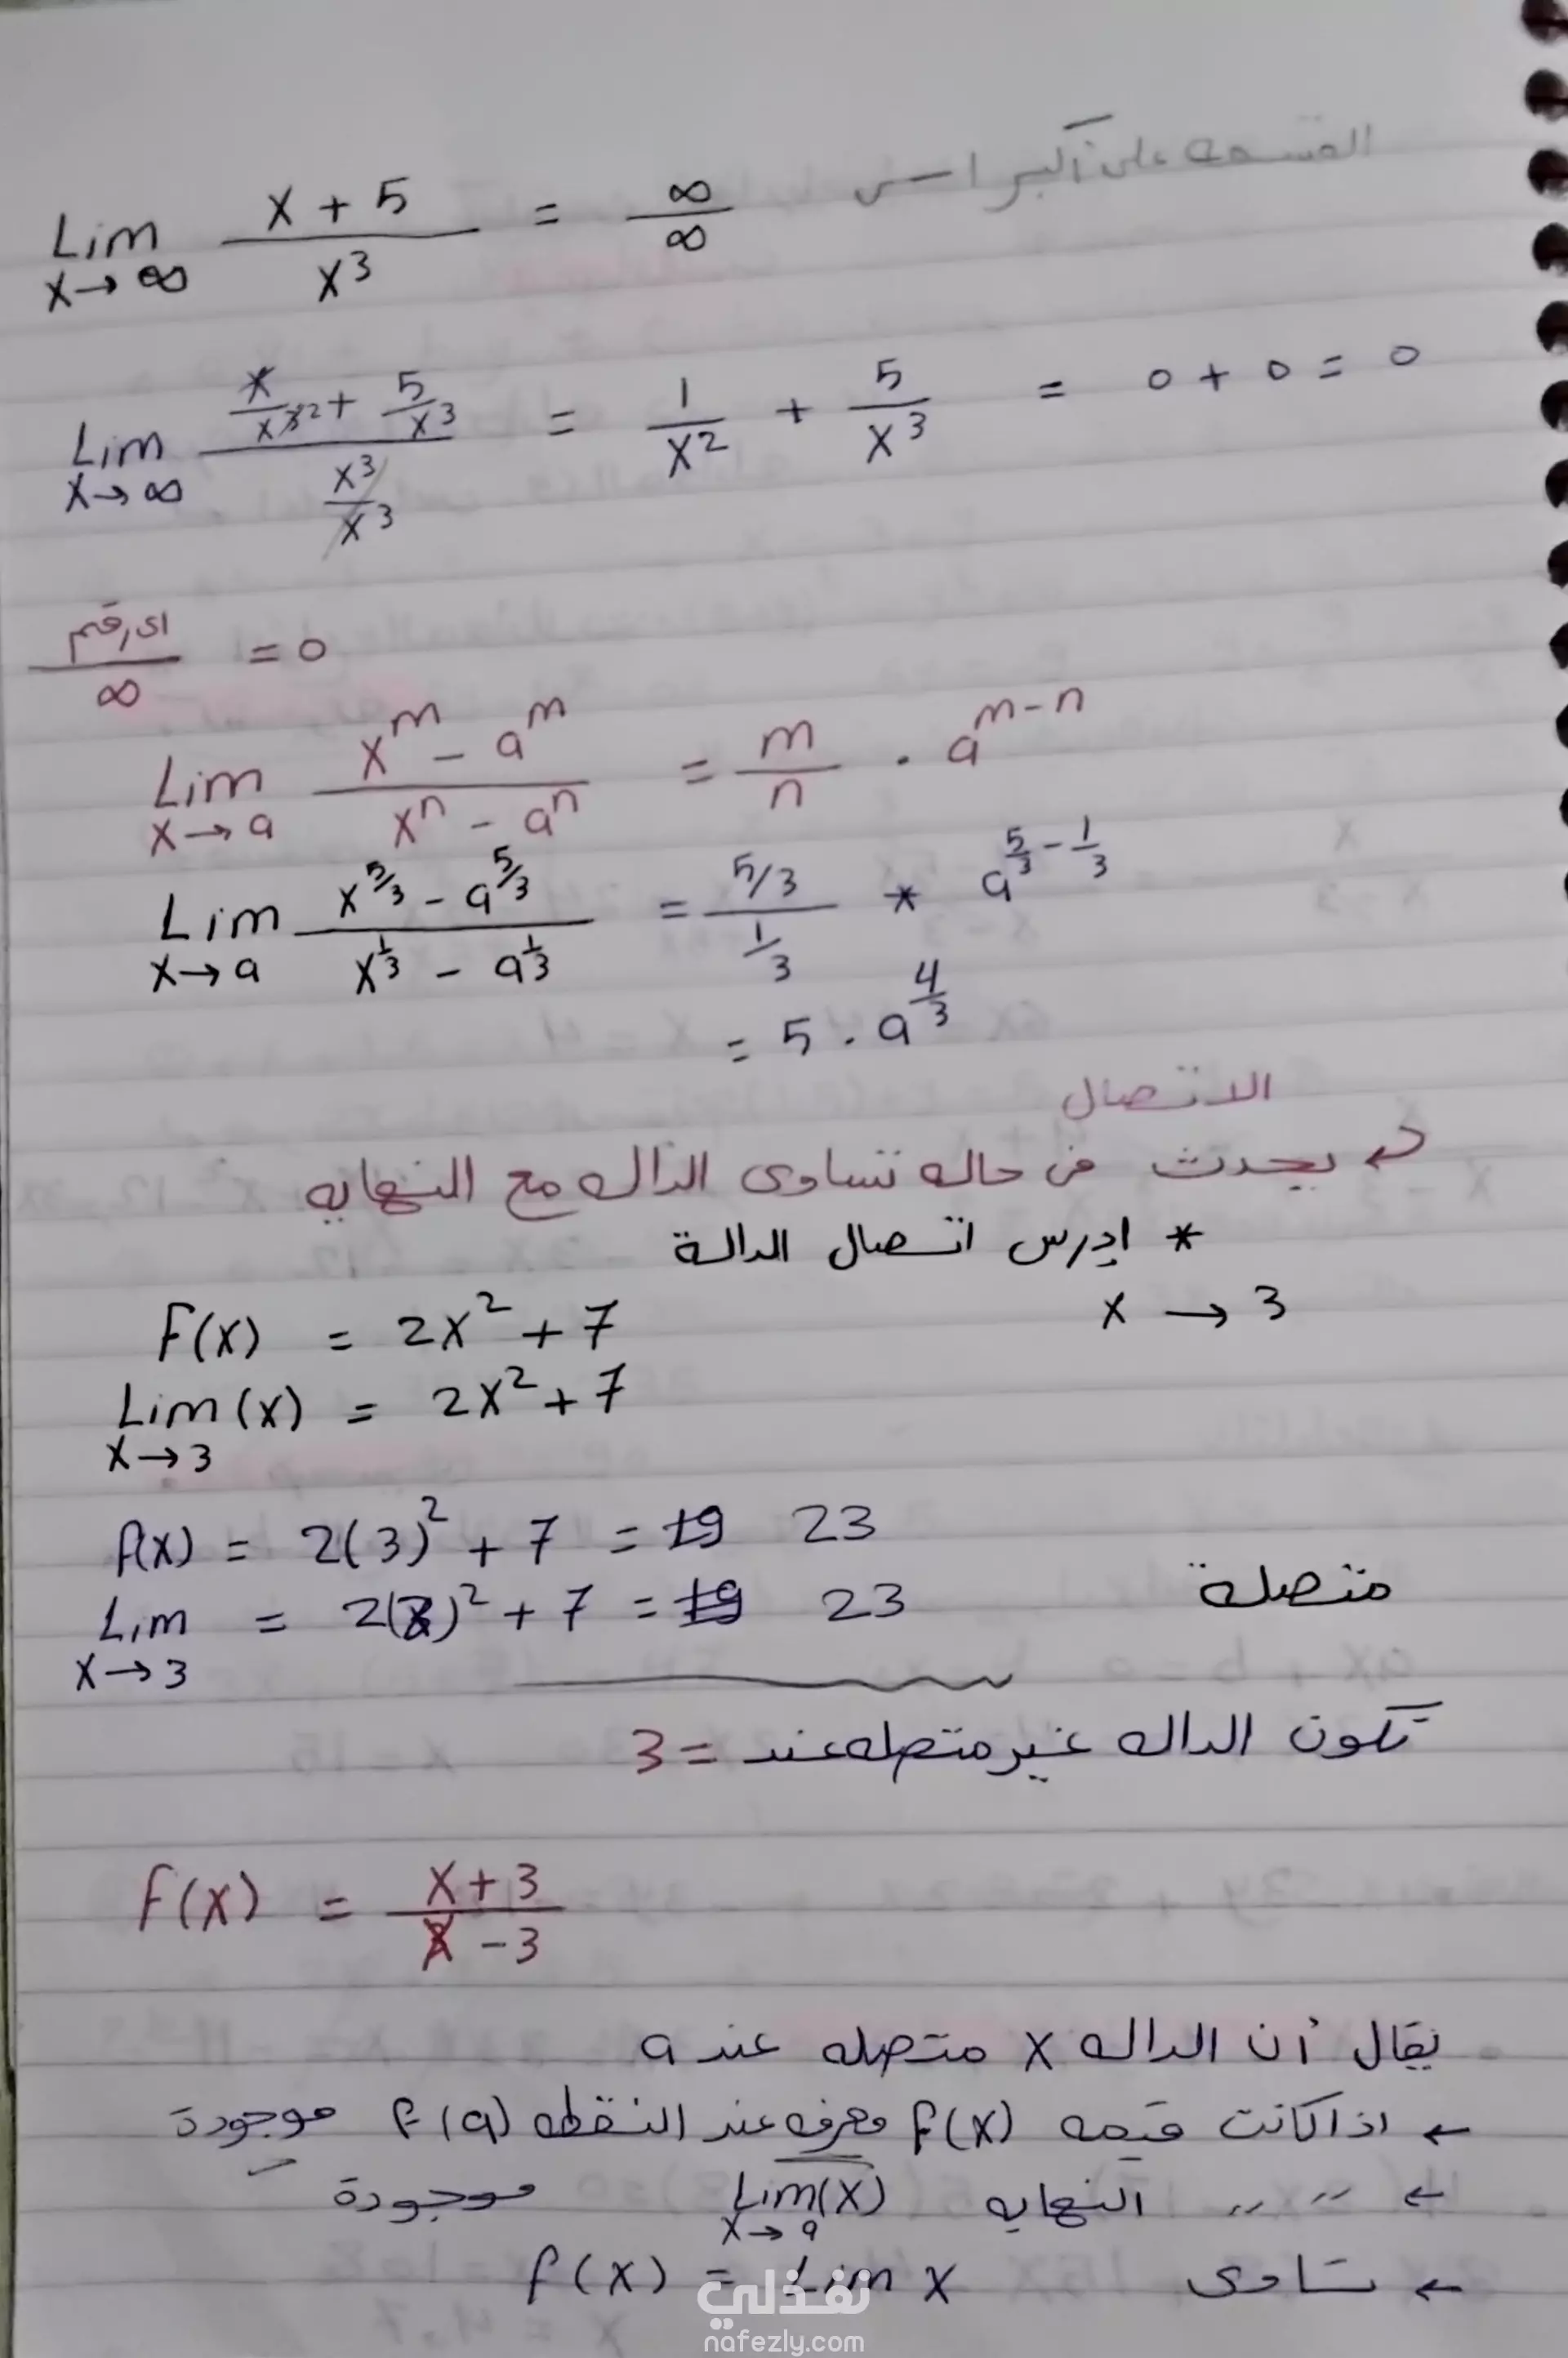 القسمه على أكبر اس
Lim x→∞ (x + 5)/x^3 = ∞/∞
Lim x→∞ (x/x^3 2 + 5/x^3)/(x^3/x^3) = 1/x^2 + 5/x^3 = 0 + 0 = 0
اى رقم/∞ = 0
Lim x→a (x^m - a^m)/(x^n - a^n) = m/n . a^(m-n)
Lim x→a (x^(5/3) - a^(5/3))/(x^(1/3) - a^(1/3)) = (5/3)/(1/3) * a^(5/3 - 1/3)
= 5 . a^(4/3)
الاتصال
يحدث فى حاله تساوى الداله مع النهايه
* ادرس اتصال الدالة
F(x) = 2x^2 + 7 x → 3
Lim (x) x→3 = 2x^2 + 7
f(x) = 2(3)^2 + 7 = 19 23
Lim x→3 = 2(3)^2 + 7 = 19 23 متصلة
تكون الداله غير متصله عند = 3
f(x) = (x + 3)/(x - 3)
يقال أن الداله x متصله عند a
← اذا كانت قيمه f(x) معرفه عند النقطه f(a) موجودة
← " " النهايه Lim(x) x→a موجودة
← تساوى f(x) = Lim x
نفذلي
nafezly.com